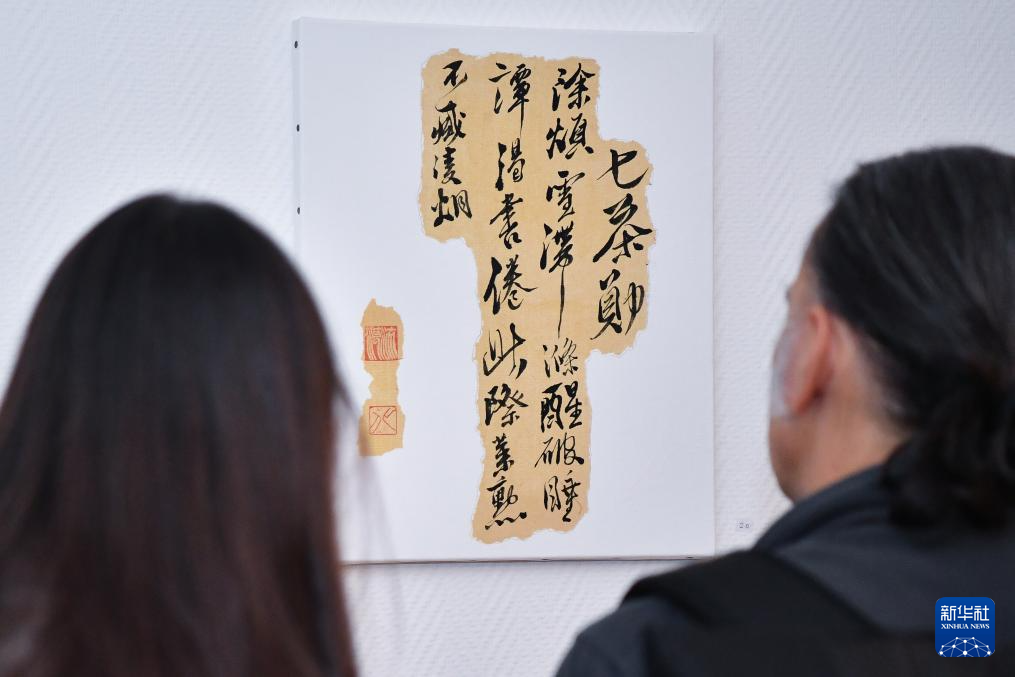 七茶勛
除煩雪滯滌醒破睡
譚渴書倦此際策勳
不減凌烟
新华社
XINHUA NEWS